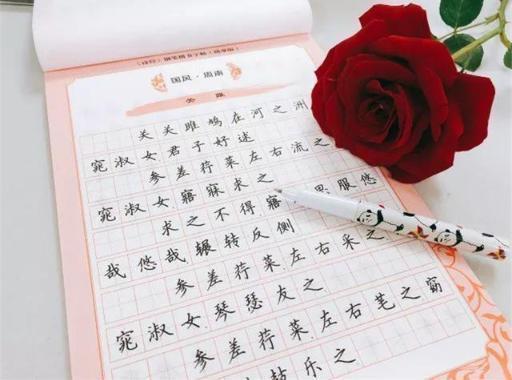 国风·周南
关雎
关关雎鸠在河之洲
窕淑女君子好逑
参差荇菜左右流之
窕淑女寤寐求之
求之不得寤 思服悠
哉悠哉辗转反侧
参差荇菜左右采之
窕淑女琴瑟友之
参差荇菜左右笔之窈
鼓乐之